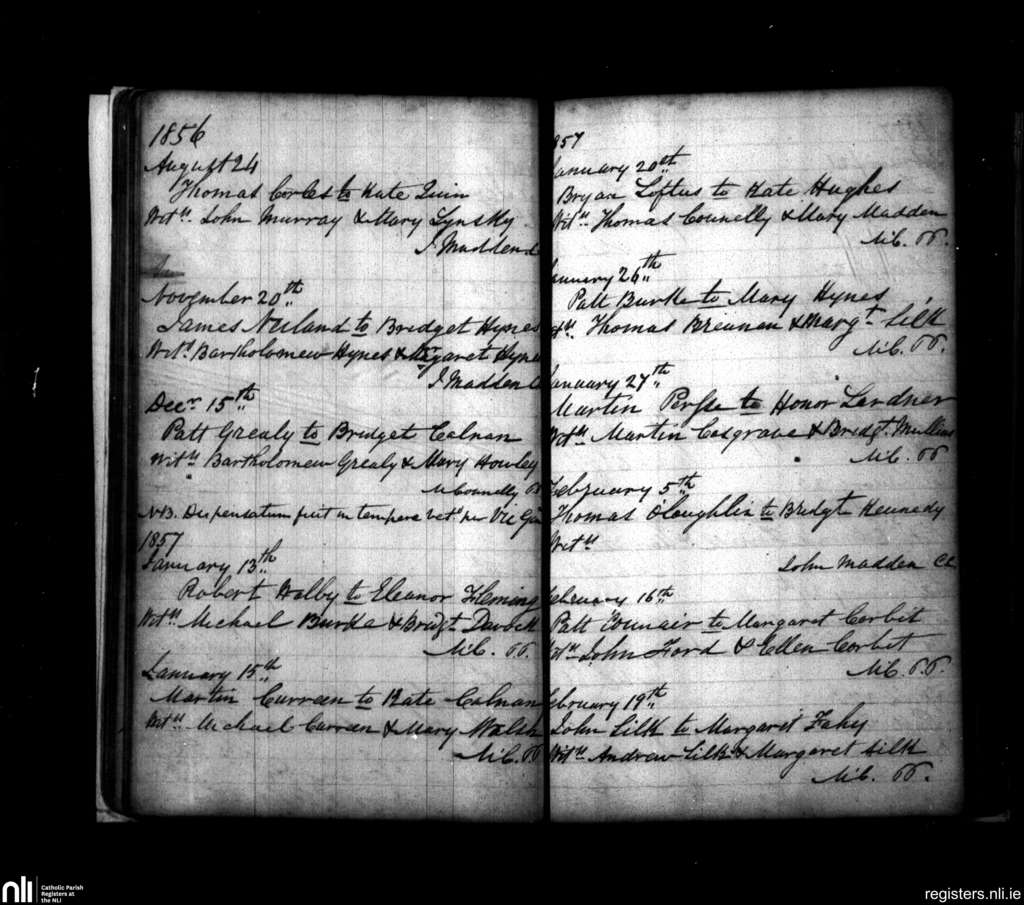 1856
August 24
Thomas Corles to Kate Quin
Wits. John Murray & Mary Lynsky
J Madden
November 20th
James Neiland to Bridget Hynes
Wits Bartholomew Hynes & Margaret Hyne
J Madden C
Decr. 15th
Patt Grealy to Bridget Calnan
Wits Bartholomew Grealy & Mary Howley
M Connelly PP
NB. Dispensatum fuit in tempore vet per Vic Gen
1857
January 13th
Robert Holby to Eleanor Fleming
Wits Michael Burke & Bridgt
M.C. PP.
January 15th
Martin Curreen to Kate Calnan
Wits Michael Curreen & Mary Walsh
M.C. PP
857
January 20th
Bryan Loftus to Kate Hughes
Wits Thomas Connelly & Mary Madden
M.C. PP.
anuary 26th
Patt Burke to Mary Hynes
its. Thomas Brennan & Margt Silk
M.C. PP.
January 27th
Martin Persse to Honor Lardner
Wits Martin Cosgrave & Bridgt. Mullins
M.C. PP
February 5th
Thomas O'Loughlin to Bridgt Kennedy
Wits
John Madden CC
ebruary 16th
Patt Connair to Margaret Corbit
its John Ford & Ellen Corbit
M.C. P.P.
ebruary 19th
John Silk to Margaret Fahy
Wits Andrew Silk & Margaret Silk
M.C. PP.
nli
Catholic Parish
Registers at
the NLI
registers.nli.ie